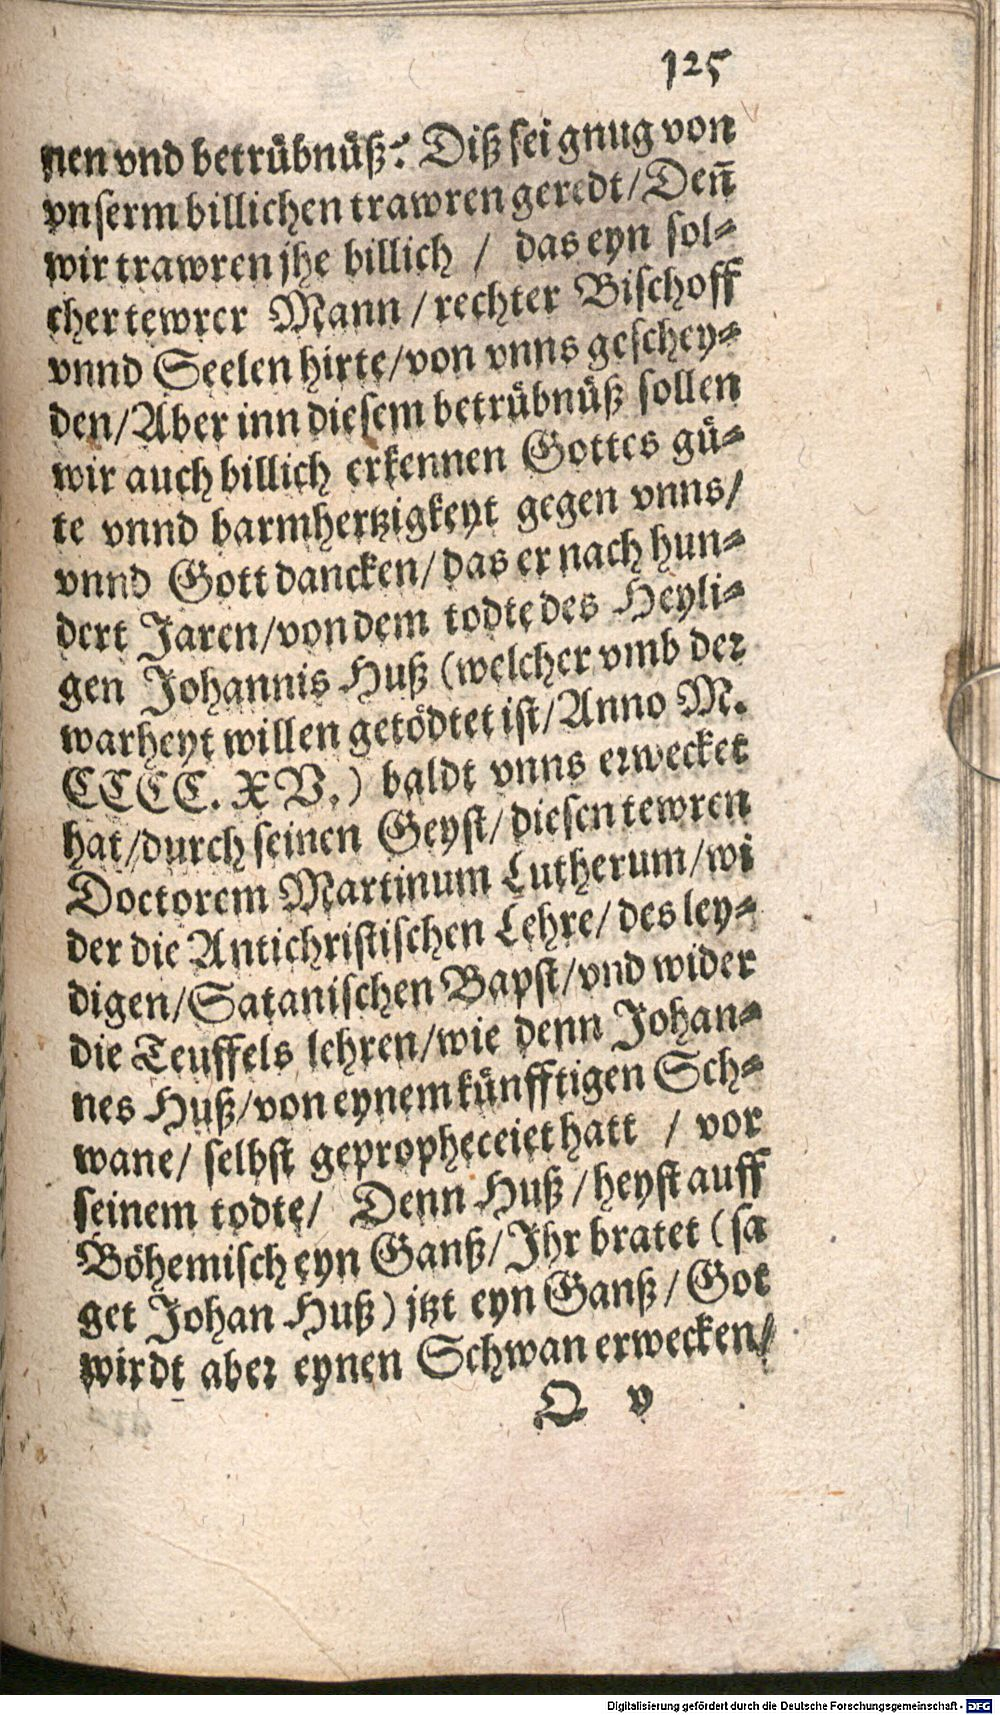 125
nen vnd betrübnüß? Diß sei gnug von
vnserm billichen trawren geredt/ Deñ
wir trawren jhe billich / das eyn sol⸗
cher tewrer Mann / rechter Bischoff
vnnd Seelen hirte/ von vnns geschey⸗
den/ Aber inn diesem betrübnüß sollen
wir auch billich erkennen Gottes gü⸗
te vnnd barmhertzigkeyt gegen vnns/
vnnd Gott dancken/ das er nach hun⸗
dert Jaren/ von dem todte des Heyli⸗
gen Johannis Huß (welcher vmb der
warheyt willen getödtet ist/ Anno M.
CCCC. XV.) baldt vnns erwecket
hat/ durch seinen Geyst/ diesen tewren
Doctorem Martinum Lutherum/ wi
der die Antichristischen Lehre/ des ley⸗
digen/ Satanischen Bapst/ vnd wider
die Teuffels lehren/ wie denn Johan⸗
nes Huß/ von eynem künfftigen Sch⸗
wane/ selbst gepropheceiet hatt / vor
seinem todte/ Denn Huß / heyst auff
Böhemisch eyn Ganß/ Jhr bratet (sa
get Johan Huß) jtzt eyn Ganß/ Got
wirdt aber eynen Schwan erwecken/
Q v
Digitalisierung gefördert durch die Deutsche Forschungsgemeinschaft - DFG